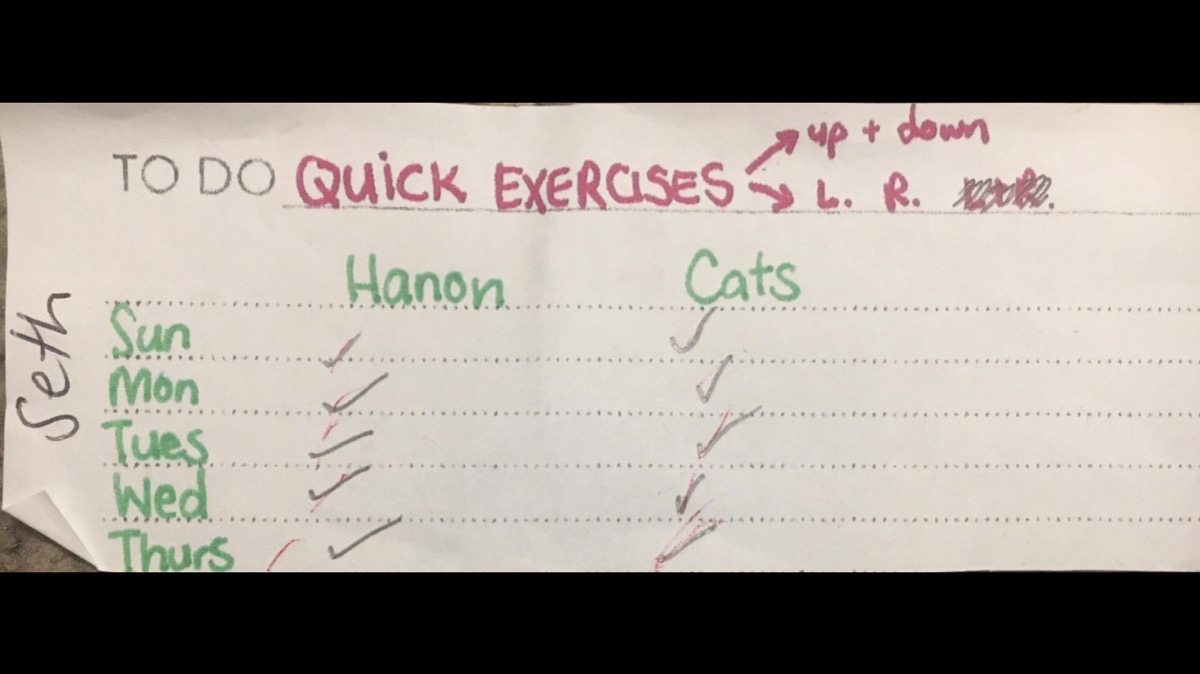 up + down
TO DO QUICK EXERCISES L. R.
Hanon Cats
Sun ✓ ✓
Mon ✓ ✓
Tues ✓ ✓
Wed ✓ ✓
Thurs ✓ ✓
Seth